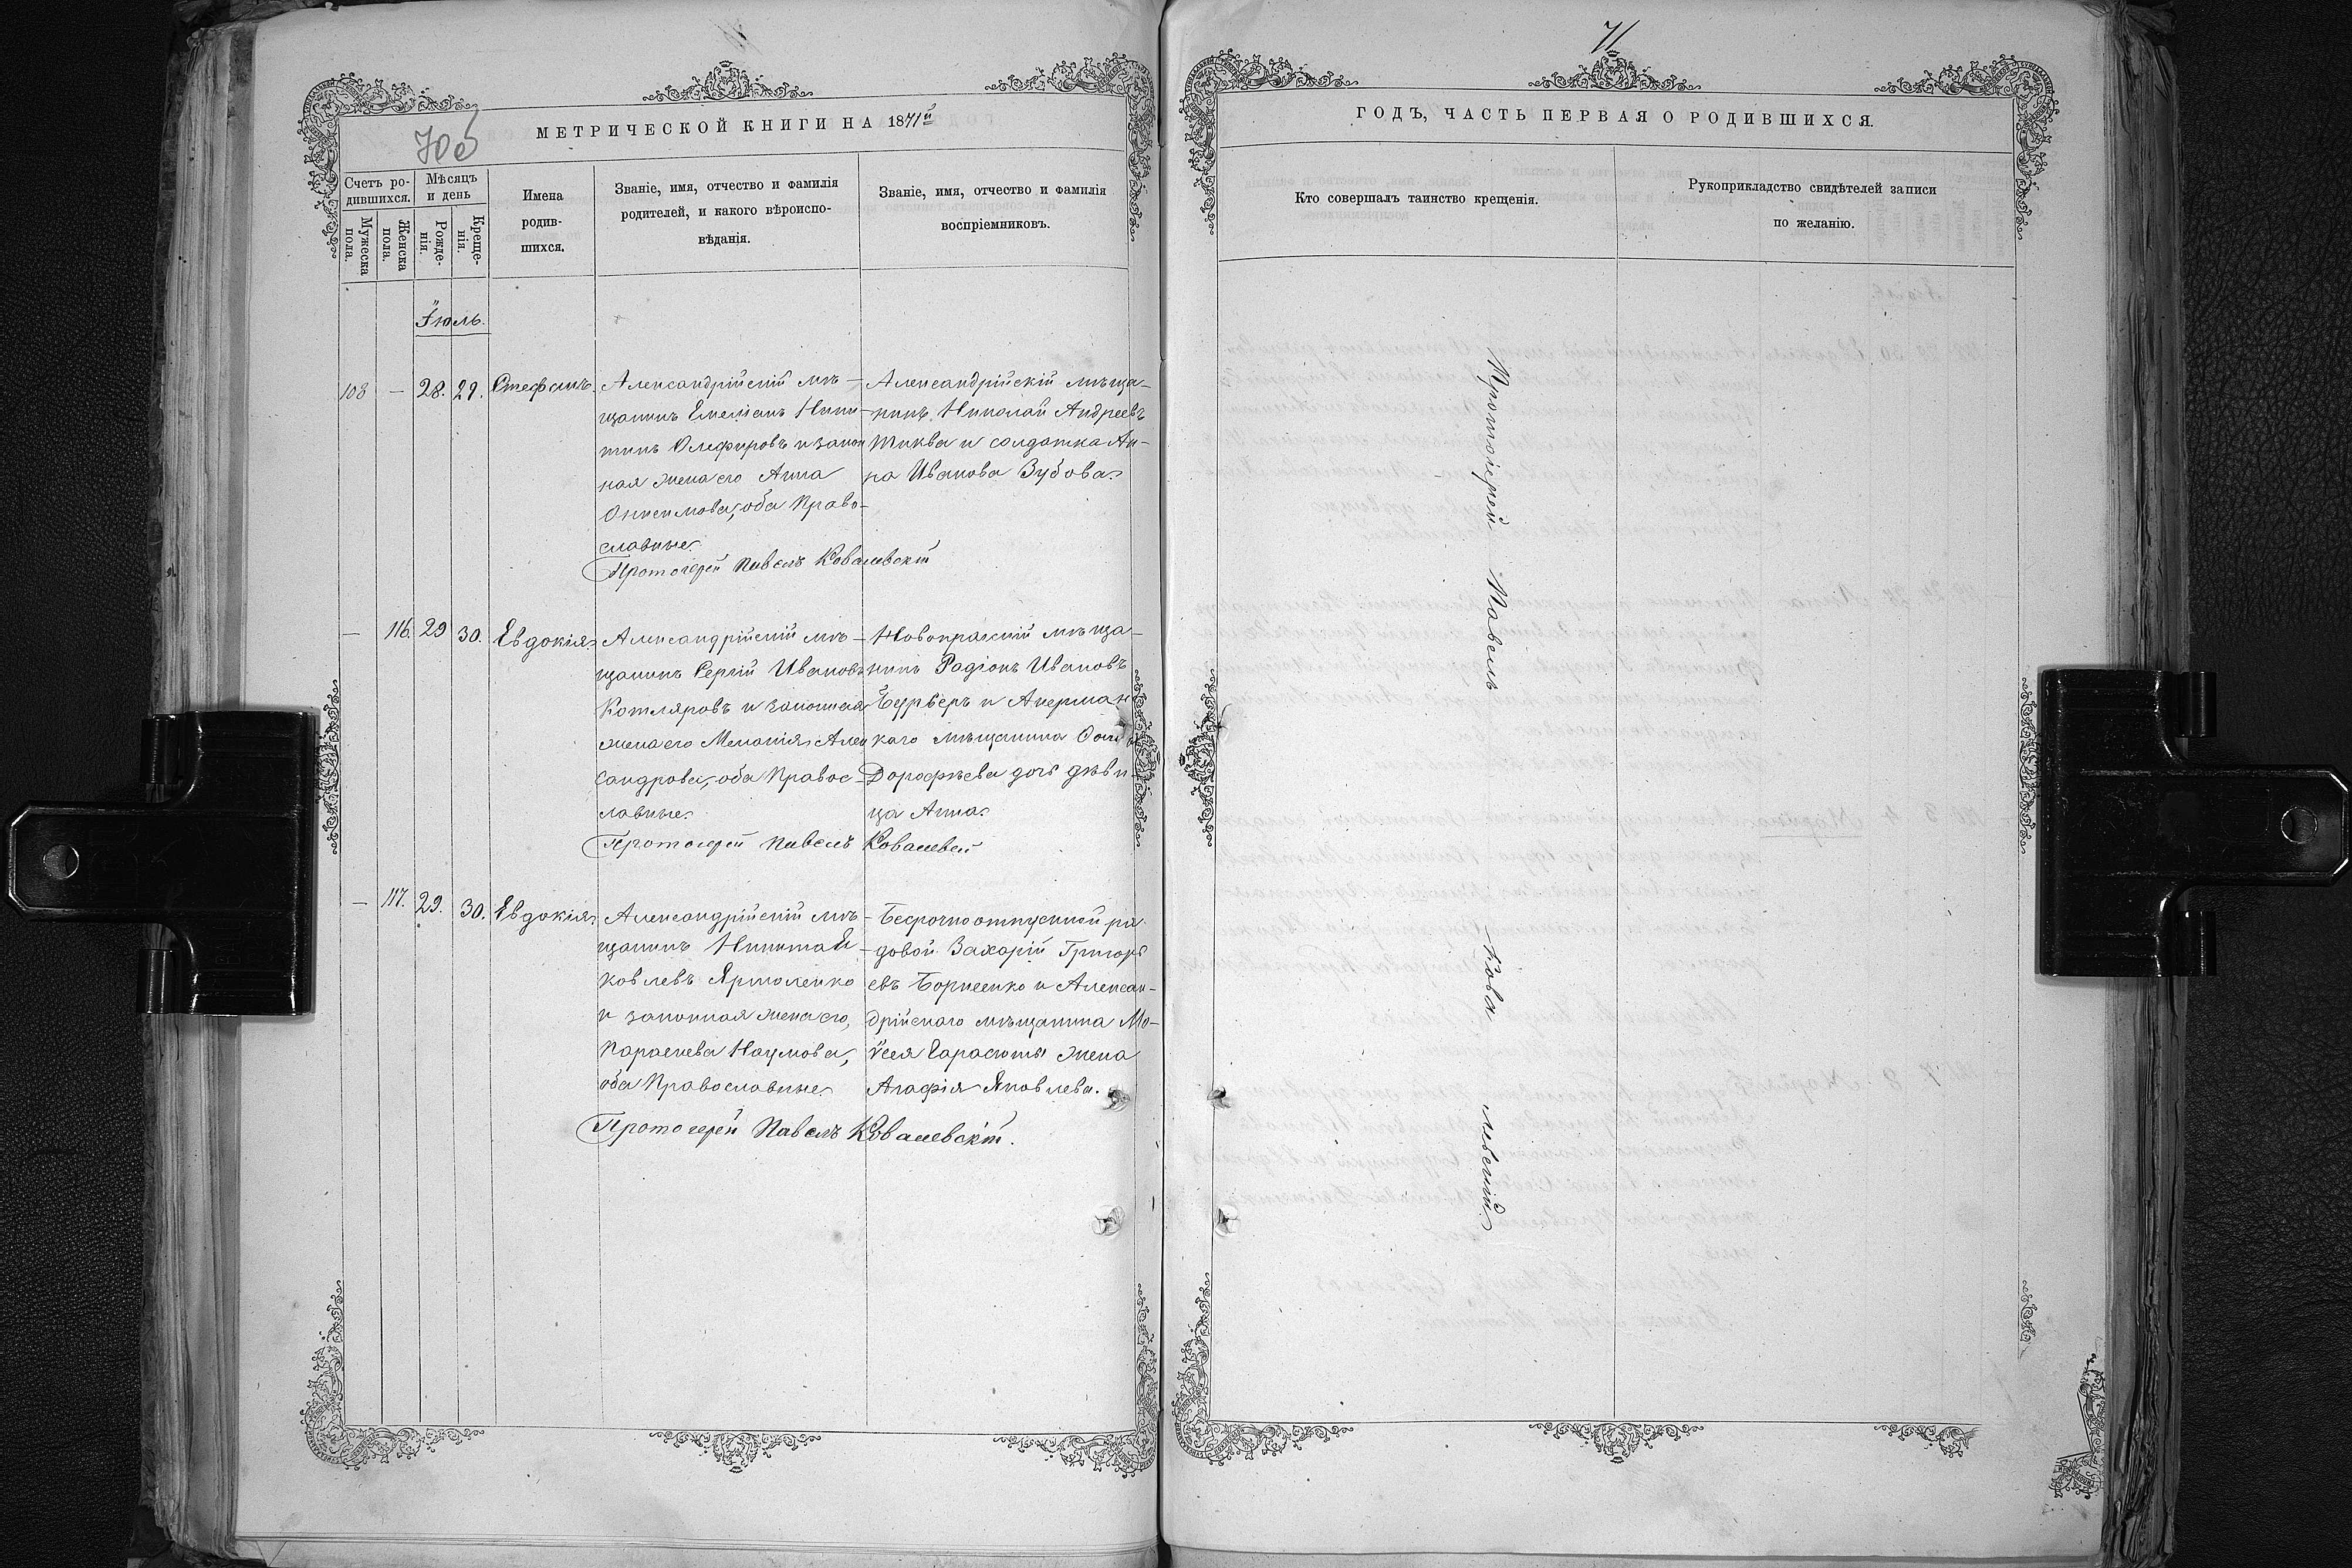 70об
МЕТРИЧЕСКОЙ КНИГИ НА 1871й
Счетъ ро-
дившихся.
Мужеска
пола.
Женска
пола.
Мѣсяцъ
и день
Рожде-
нія.
Креще-
нія.
Имена
родив-
шихся.
Званіе, имя, отчество и фамилія
родителей, и какого вѣроиспо-
вѣданія.
Званіе, имя, отчество и фамилія
воспріемниковъ.
Іюль.
108 — 28. 29. Стефанъ.
Александрійскій мѣ-
щанинъ Емеліанъ Ники-
тинъ Олефировъ и закон
ная жена его Анна
Онисимова, оба Право-
славные.
Александрійскій мѣща-
нинъ Николай Андреевъ
Тиква и солдатка Ан-
на Иванова Зубова.
Протоіерей Павелъ Ковалевскій
— 116. 29 30. Евдокія
Александрійскій мѣ-
щанинъ Сергій Ивановъ
Котляровъ и законная
жена его Меланія Алек
сандрова, оба Правос-
лавные.
Новопражскій мѣща-
нинъ Радіонъ Ивановъ
и Акерман
каго мѣщанина
Дорофѣева дочь дѣви-
ца Анна.
Протоіерей Павелъ Ковалевскій
— 117. 29. 30. Евдокія
Александрійскій мѣ-
щанинъ Никита Я-
ковлевъ Ярмоленко
и законная жена его,
Параскева Наумова,
оба Православные.
Бесрочноотпускной ря
довой Захарій Григорь
евъ Борисенко и Алексан-
дрійскаго мѣщанина Мо-
ѵсея Гарасюты жена
Агафія Яковлева.
Протоіерей Павелъ Ковалевскій.
71
ГОДЪ, ЧАСТЬ ПЕРВАЯ О РОДИВШИХСЯ.
Кто совершалъ таинство крещенія.
Рукоприкладство свидѣтелей записи
по желанію.
Протоіерей Павелъ Ковалевскій